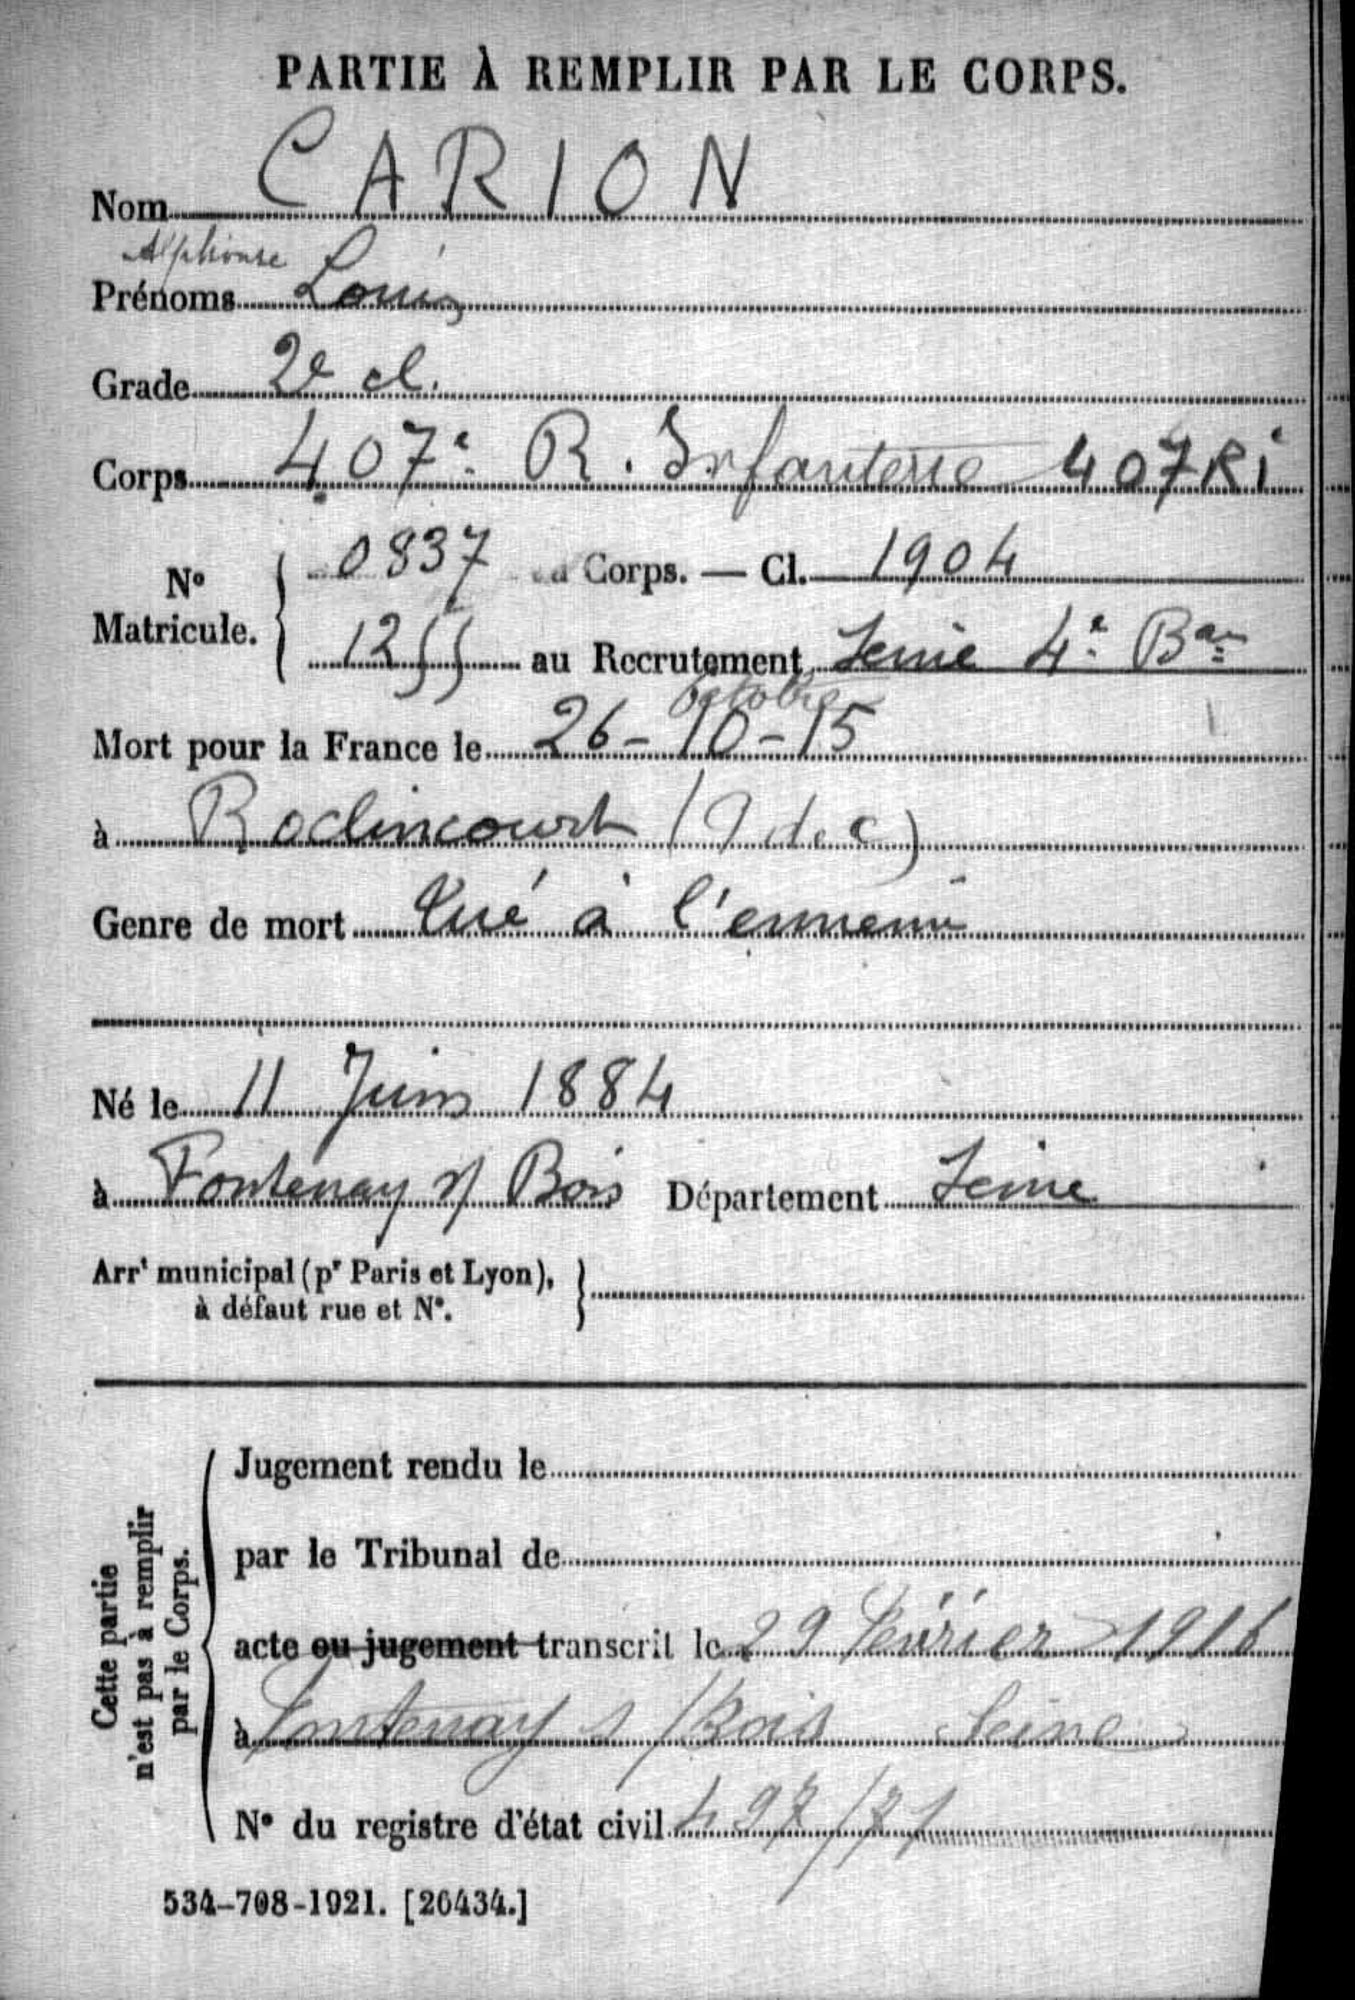 PARTIE À REMPLIR PAR LE CORPS.
Nom CARION
Alphonse
Prénoms Louis
Grade 2e cl.
Corps 407e R. Infanterie 407 RI
No Matricule. { 0837 au Corps. — Cl. 1904
1255 au Recrutement Seine 4e Bau
octobre
Mort pour la France le 26-10-15
à Roclincourt (P de C)
Genre de mort tué à l'ennemi
Né le 11 Juin 1884
à Fontenay s/ Bois Département Seine
Arrt municipal (pr Paris et Lyon), à défaut rue et No. }
Cette partie n'est pas à remplir par le Corps.
Jugement rendu le
par le Tribunal de
acte ou jugement transcrit le 29 février 1916
à Fontenay s/Bois Seine
No du registre d'état civil 497/71
534-708-1921. [26434.]